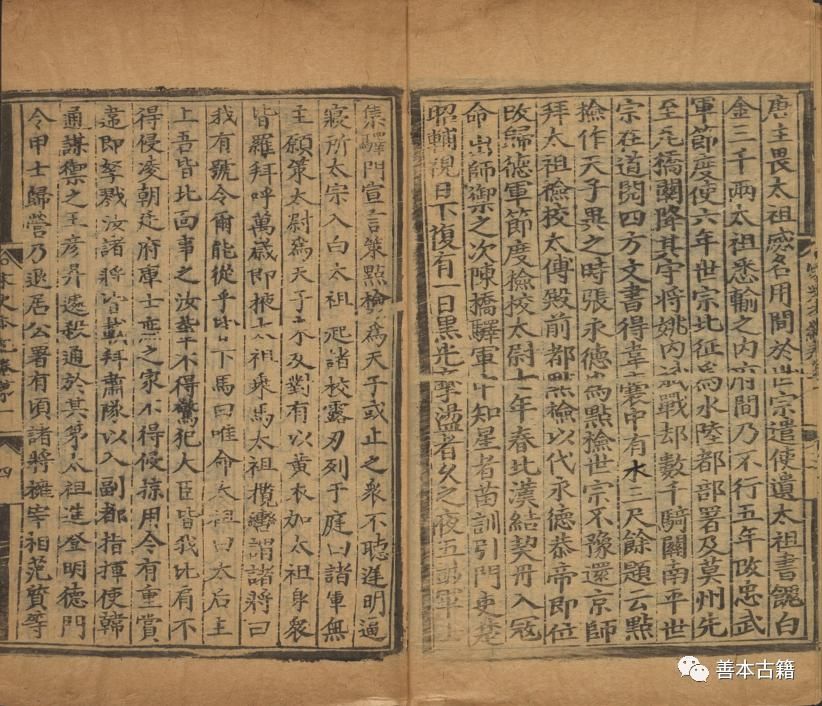 唐主畏太祖威名用間於世宗遣使遺太祖書餽白
金三千兩太祖悉輸之内府間乃不行五年改忠武
軍節度使六年世宗北征爲水陸都部署及莫州先
至瓦橋關降其守將姚内斌戰却數千騎關南平世
宗在道閱四方文書得韋囊中有木三尺餘題云點
撿作天子異之時張永德爲點撿世宗不豫還京師
拜太祖撿校太傅殿前都點撿以代永德恭帝即位
改歸德軍節度撿校太尉七年春北漢結契丹入冦
命出師禦之次陳橋驛軍中知星者苗訓引門吏楚
昭輔視日下復有一日黑光摩盪者久之夜五鼓軍士
集驛門宣言策點撿爲天子或止之衆不聽遲明逼
寢所太宗入白太祖起諸校露刃列于庭曰諸軍無
主願策太尉爲天子未及對有以黄衣加太祖身衆
皆羅拜呼萬歲即掖太祖乘馬太祖攬轡謂諸將曰
我有號令爾能從乎皆下馬曰唯命太祖曰太后主
上吾皆北面事之汝輩不得驚犯大臣皆我比肩不
得侵凌朝廷府庫士庶之家不得侵掠用令有重賞
違即孥戮汝諸將皆載拜肅隊以入副都指揮使韓
通謀禦之王彦昇遽殺通於其第太祖進登明德門
令甲士歸營乃退居公署有頃諸將擁宰相范質等
宋史本紀卷第一
四
善本古籍